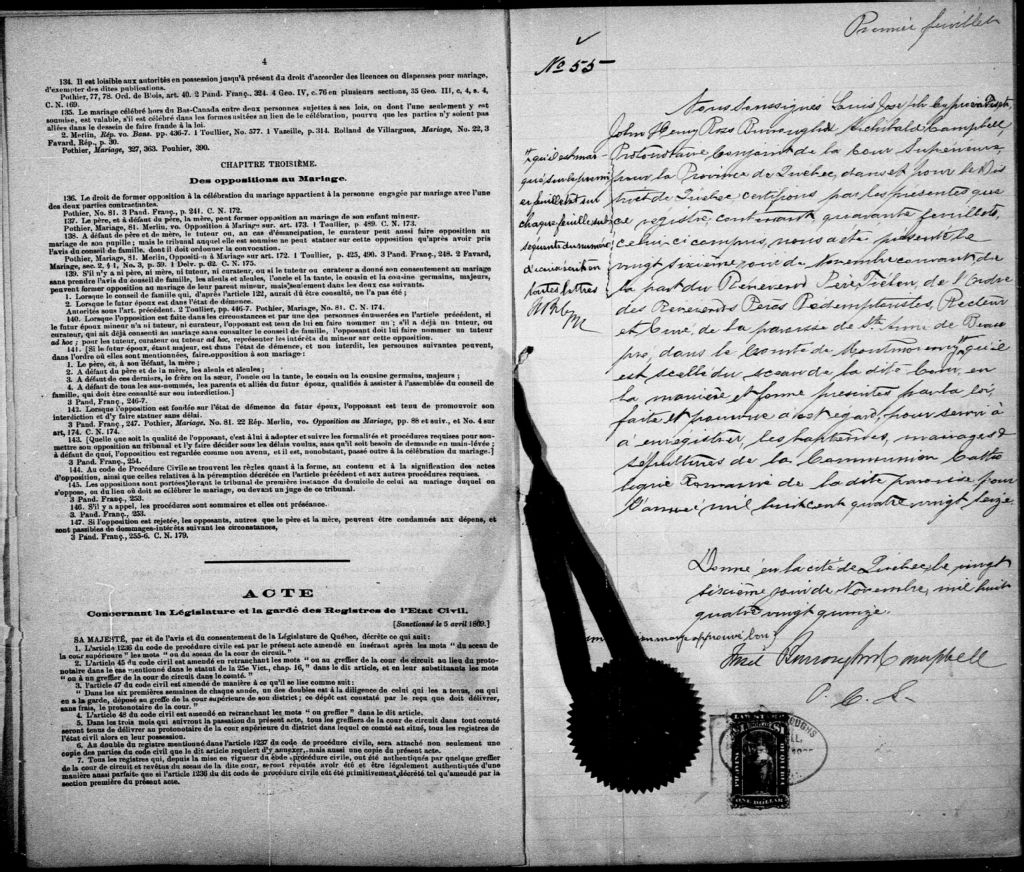 4
134. Il est loisible aux autorités en possession jusqu'à présent du droit d'accorder des licences ou dispenses pour mariage,
d'exempter des dites publications.
Pothier, 77, 78. Ord. de Blois, art. 40. 2 Pand. Franç., 324. 4 Geo. IV, c. 76 en plusieurs sections, 35 Geo. III, c, 4, s. 4,
C. N. 169.
135. Le mariage célébré hors du Bas-Canada entre deux personnes sujettes à ses lois, ou dont l'une seulement y est
soumise, est valable, s'il est célébré dans les formes usitées au lieu de la célébration, pourvu que les parties n'y soient pas
allées dans le dessein de faire fraude à la loi.
2. Merlin, Rép. vo. Bans. pp. 436-7. 1 Toullier, No. 577. 1 Vazeille, p. 314. Rolland de Villargues, Mariage, No. 22, 3
Favard, Rép., p. 30.
Pothier, Mariage, 327, 363. Pouhier, 390.
CHAPITRE TROISIÈME.
Des oppositions au Mariage.
136. Le droit de former opposition à la célébration du mariage appartient à la personne engagée par mariage avec l'une
des deux parties contractantes.
Pothier, No. 81. 3 Pand. Franç., p. 241. C. N. 172.
137. Le père, et à défaut du père, la mère, peut former opposition au mariage de son enfant mineur.
Pothier, Mariage, 81. Merlin, vo. Opposition à Mariage sur art. 173. 1 Toullier, p. 489. C. N. 173.
138. A défaut de père et de mère, le tuteur ou, au cas d'émancipation, le curateur peut aussi faire opposition au
mariage de son pupille; mais le tribunal auquel elle est soumise ne peut statuer sur cette opposition qu'après avoir pris
l'avis du conseil de famille, dont il doit ordonner la convocation.
Pothier, Mariage, 81. Merlin, Opposition à Mariage sur art. 172. 1 Toullier, p. 425, 490. 3 Pand. Franç., 248. 2 Favard,
Mariage, sec. 2, § 1, No. 3, p. 59. 1 Delv. p. 62. C. N. 175.
139. S'il n'y a ni père, ni mère, ni tuteur, ni curateur, ou si le tuteur ou curateur a donné son consentement au mariage
sans prendre l'avis du conseil de famille, les aïeuls et aïeules, l'oncle et la tante, le cousin et la cousine germains, majeurs,
peuvent former opposition au mariage de leur parent mineur, mais seulement dans les deux cas suivants.
1. Lorsque le conseil de famille qui, d'après l'article 122, aurait dû être consulté, ne l'a pas été;
2. Lorsque le futur époux est dans l'état de démence.
Autorités sous l'art. précédent. 2 Toullier, pp. 446-7. Pothier, Mariage, No. 81. C. N. 174.
140. Lorsque l'opposition est faite dans les circonstances et par une des personnes énumérées en l'article précédent, si
le futur époux mineur n'a ni tuteur, ni curateur, l'opposant est tenu de lui en faire nommer un; s'il a déjà un tuteur, ou
curateur, qui ait déjà consenti au mariage sans consulter le conseil de famille, l'opposant doit lui faire nommer un tuteur
ad hoc; pour les tuteur, curateur ou tuteur ad hoc, représenter les intérêts du mineur sur cette opposition.
141. [Si le futur époux, étant majeur, est dans l'état de démence, et non interdit, les personnes suivantes peuvent,
dans l'ordre où elles sont mentionnées, faire opposition à son mariage:
1. Le père, et, à son défaut, la mère;
2. A défaut du père et de la mère, les aïeuls et aïeules;
3. A défaut de ces derniers, le frère ou la sœur, l'oncle ou la tante, le cousin ou la cousine germains, majeurs;
4. A défaut de tous les sus-nommés, les parents et alliés du futur époux, qualifiés à assister à l'assemblée du conseil de
famille, qui doit être consulté sur son interdiction.]
3 Pand. Franç., 246-7.
142. Lorsque l'opposition est fondée sur l'état de démence du futur époux, l'opposant est tenu de promouvoir son
interdiction et d'y faire statuer sans délai.
3 Pand. Franç., 247. Pothier, Mariage. No. 81. 22 Rép. Merlin, vo. Opposition au Mariage, pp. 88 et suiv., et No. 4 sur
art. 174. C. N. 174.
143. [Quelle que soit la qualité de l'opposant, c'est à lui à adopter et suivre les formalités et procédures requises pour sou-
mettre son opposition au tribunal et l'y faire décider sous les délais voulus, sans qu'il soit besoin de demande en main-lévée;
à défaut de quoi, l'opposition est regardée comme non avenue, et il est, nonobstant, passé outre à la célébration du mariage.]
3 Pand. Franç., 254.
144. Au code de Procédure Civile se trouvent les règles quant à la forme, au contenu et à la signification des actes
d'opposition, ainsi que celles relatives à la péremption décrétée en l'article précédent et aux autres procédures requises.
145. Les oppositions sont portées devant le tribunal de première instance du domicile de celui au mariage duquel on
s'oppose, ou du lieu où doit se célébrer le mariage, ou devant un juge de ce tribunal.
3 Pand. Franç., 253.
146. S'il y a appel, les procédures sont sommaires et elles ont préséance.
3 Pand. Franç., 253.
147. Si l'opposition est rejetée, les opposants, autres que le père et la mère, peuvent être condamnés aux dépens, et
sont passibles de dommages-intérêts suivant les circonstances,
3 Pand. Franç., 255-6. C. N. 179.
ACTE
Concernant la Législature et la garde des Registres de l'Etat Civil.
[Sanctionné le 5 avril 1869.]
SA MAJESTÉ, par et de l'avis et du consentement de la Législature de Québec, décrète ce qui suit:
1. L'article 1236 du code de procédure civile est par le présent acte amendé en insérant après les mots "du sceau de
la cour supérieure" les mots "ou du sceau de la cour de circuit."
2. L'article 45 du code civil est amendé en retranchant les mots "ou au greffier de la cour de circuit au lieu du proto-
notaire dans le cas mentionné dans le statut de la 25e Vict., chap. 16," dans le dit article, et en leur substituant les mots
"ou à un greffier de la cour de circuit dans le comté."
3. l'article 47 du code civil est amendé de manière à ce qu'il se lise comme suit:
"Dans les six premières semaines de chaque année, un des doubles est à la diligence de celui qui les a tenus, ou qui
en a la garde, déposé au greffe de la cour supérieure de son district; ce dépôt est constaté par le reçu que doit délivrer,
sans frais, le protonotaire de la cour."
4. L'article 48 du code civil est amendé en retranchant les mots "ou greffier" dans le dit article.
5. Dans les trois mois qui suivront la passation du présent acte, tous les greffiers de la cour de circuit dans tout comté
seront tenus de délivrer au protonotaire de la cour supérieure du district dans lequel ce comté est situé, tous les registres de
l'état civil alors en leur possession.
6. Au double du registre mentionné dans l'article 1237 du code de procédure civile, sera attaché non seulement une
copie des parties du code civil que le dit article requiert d'y annexer, mais aussi une copie du présent acte.
7. Tous les registres qui, depuis la mise en vigueur du code de procédure civile, ont été authentiqués par quelque greffier
de la cour de circuit et revêtus du sceau de la dite cour, seront réputés avoir été et être légalement authentiqués d'une
manière aussi parfaite que si l'article 1236 du dit code de procédure civile eût été primitivement décrété tel qu'amendé par la
section première du présent acte.
Premier feuillet
No 55
Nous Soussignés Louis Joseph
John Henry Ross Burroughs Archibald Campbell,
Protonotaire Conjoint de la Cour Supérieure,
pour la Province de Québec, dans et pour le Dis
trict de Québec certifions par les présentes que
ce registre contenant quarante feuillets,
celui-ci compris, nous a été présenté le
vingt sixième jour de Novembre courant de
la part du Révérend Père Fiévez, de l'Ordre
des Révérends Pères Rédemptoristes, Recteur
et Curé de la paroisse de Ste Anne de Beau
pré, dans le Comté de Montmorency, qu'il
est scellé du sceau de la dite Cour, en
la manière et forme prescrites par la loi,
faite et pourvue à cet égard, pour servir à
à enregistrer, les baptêmes, mariages &
sépultures de la Communion Catho
lique Romaine de la dite paroisse pour
l'année mil huit cent quatre vingt seize
qu'il est mar
qué sur le premi
er feuillet et sur
chaque feuillet sub
séquent du numéro
d'iceux écrit en
toutes lettres
Donné en la cité de Québec, le vingt
sixième jour de Novembre, mil huit
quatre vingt quinze.
en marge approuvé bon
Fiset Burroughs Campbell
P. C. S.
LAW STAMP
ONE DOLLAR